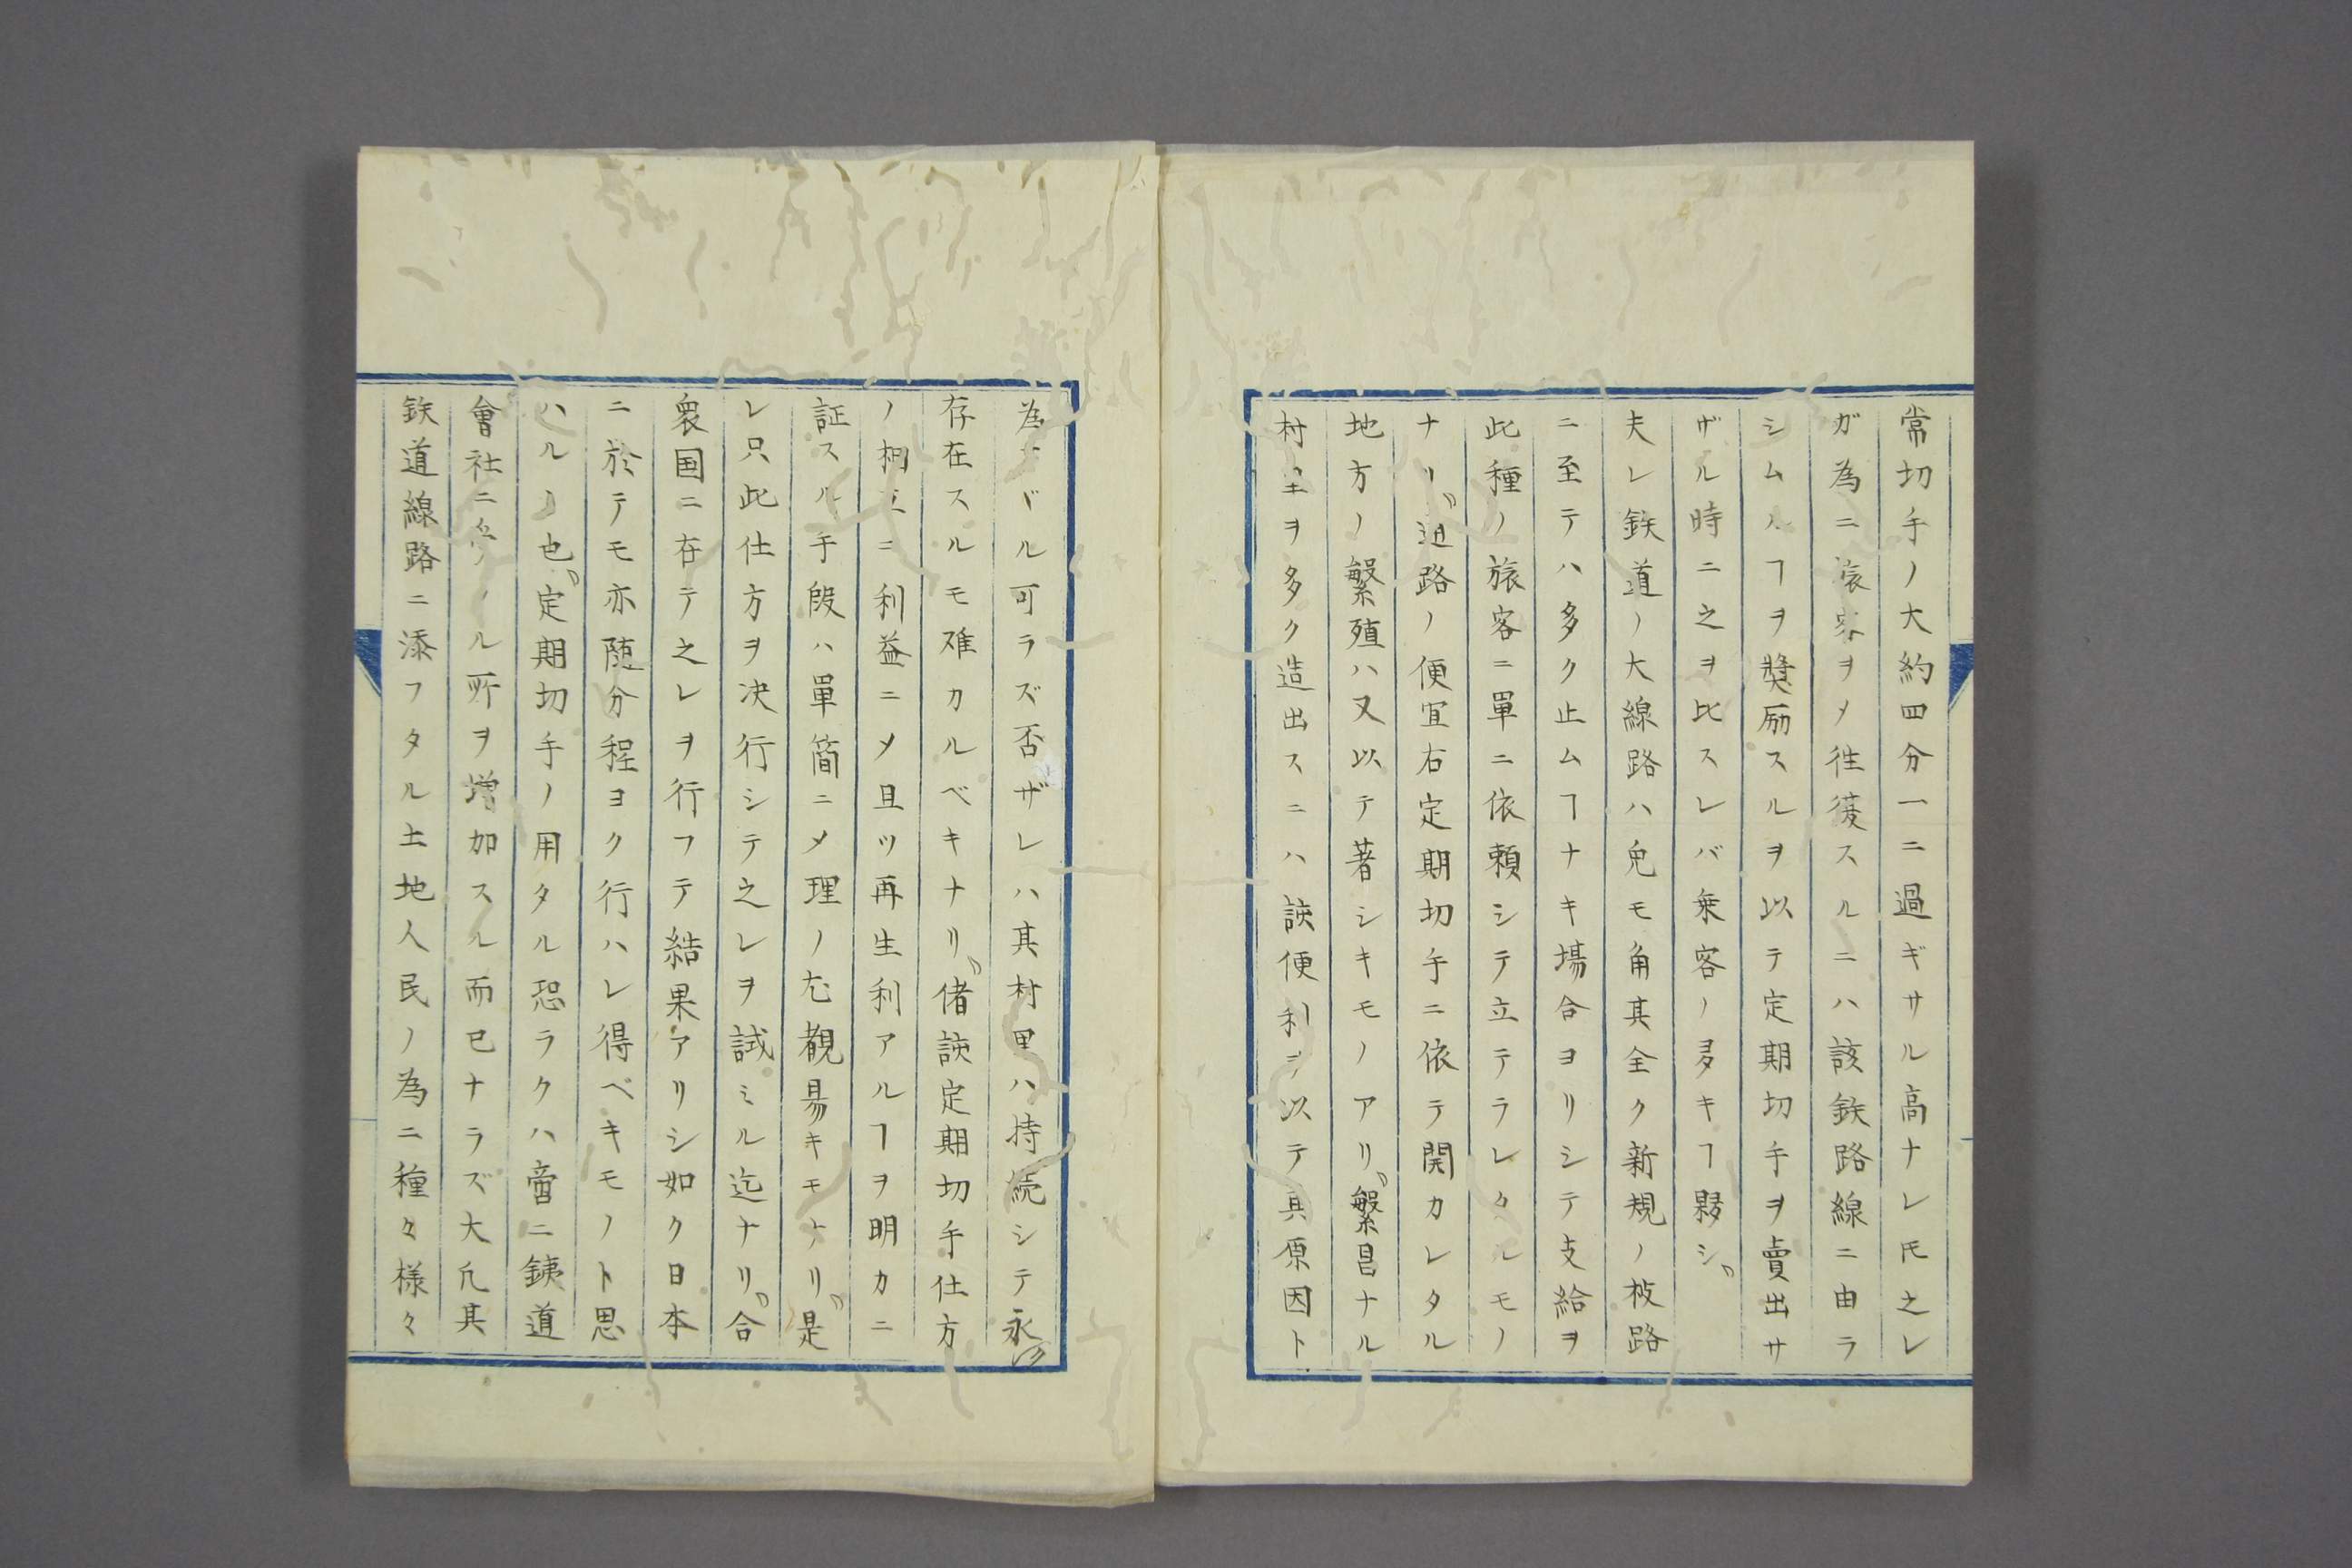 常切手ノ大約四分一ニ過ギサル高ナレ𪜈之レ
ガ為ニ旅客ヲメ徃復スルニハ該鉄路線ニ由ラ
シムルヿヲ奬励スルヲ以テ定期切手ヲ賣出サ
ザル時ニ之ヲ比スレバ乗客ノ多キヿ夥シ、
夫レ鉄道ノ大線路ハ免モ角其全ク新規ノ枝路
ニ至テハ多ク止ムヿナキ場合ヨリシテ支給ヲ
此種ノ旅客ニ單ニ依頼シテ立テラレタルモノ
ナリ、迅路ノ便宜右定期切手ニ依テ開カレタル
地方ノ繁殖ハ又以テ著シキモノアリ、繁昌ナル
村里ヲ多ク造出スニハ該便利ヲ以テ其原因ト
為サヾル可ラズ否ザレハ其村里ハ持続シテ永ク
存在スルモ难カルベキナリ、偖該定期切手仕方
ノ相互ニ利益ニメ且ツ再生利アルヿヲ明カニ
証スル手段ハ單簡ニメ理ノ尤觀昜キモナリ、是
レ只此仕方ヲ决行シテ之レヲ試ミル迄ナリ、合
衆国ニ在テ之レヲ行フテ結果アリシ如ク日本
ニ於テモ亦随分程ヨク行ハレ得ベキモノト思
ハルヽ也、定期切手ノ用タル恐ラクハ啻ニ銕道
會社ニ当ル所ヲ増加スル而已ナラズ大凢其
鉄道線路ニ添フタル土地人民ノ為ニ種々様々